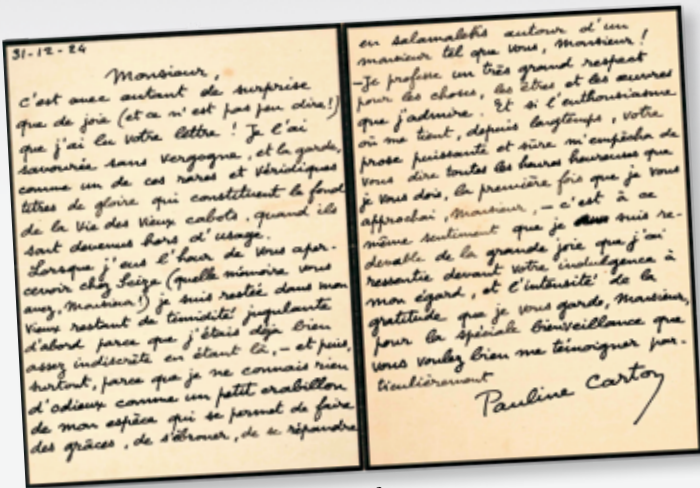 31-12-24
Monsieur,
c'est avec autant de surprise
que de joie (et ce n'est pas peu dire!)
que j'ai lu votre lettre ! Je l'ai
savourée sans vergogne, et la garde,
comme un de ces rares et véridiques
titres de gloire qui constituent le fond
de la vie des vieux cabots, quand ils
sont devenus hors d'usage.
Lorsque j'eus l'heur de vous aper-
cevoir chez (quelle mémoire vous
avez, Monsieur!) je suis restée dans mon
vieux restant de timidité jugulante
d'abord parce que j'étais déjà bien
assez indiscrète en étant là, - et puis,
surtout, parce que je ne connais rien
d'odieux comme un petit
de mon espèce qui se permet de faire
des grâces, de s'ébrouer, de se répandre
en salamaleks autour d'un
monsieur tel que vous, Monsieur !
- Je professe un très grand respect
pour les choses, les êtres et les œuvres
que j'admire. Et si l'enthousiasme
où me tient, depuis longtemps, votre
prose puissante et sûre m'empêcha de
vous dire toutes les heures heureuses que
je vous dois, la première fois que je vous
approchai, Monsieur, - c'est à ce
même sentiment que je suis re-
devable de la grande joie que j'ai
ressentie devant votre indulgence à
mon égard, et l'intensité de la
gratitude que je vous garde, Monsieur,
pour la spéciale bienveillance que
vous voulez bien me témoigner par-
ticulièrement
Pauline Carton